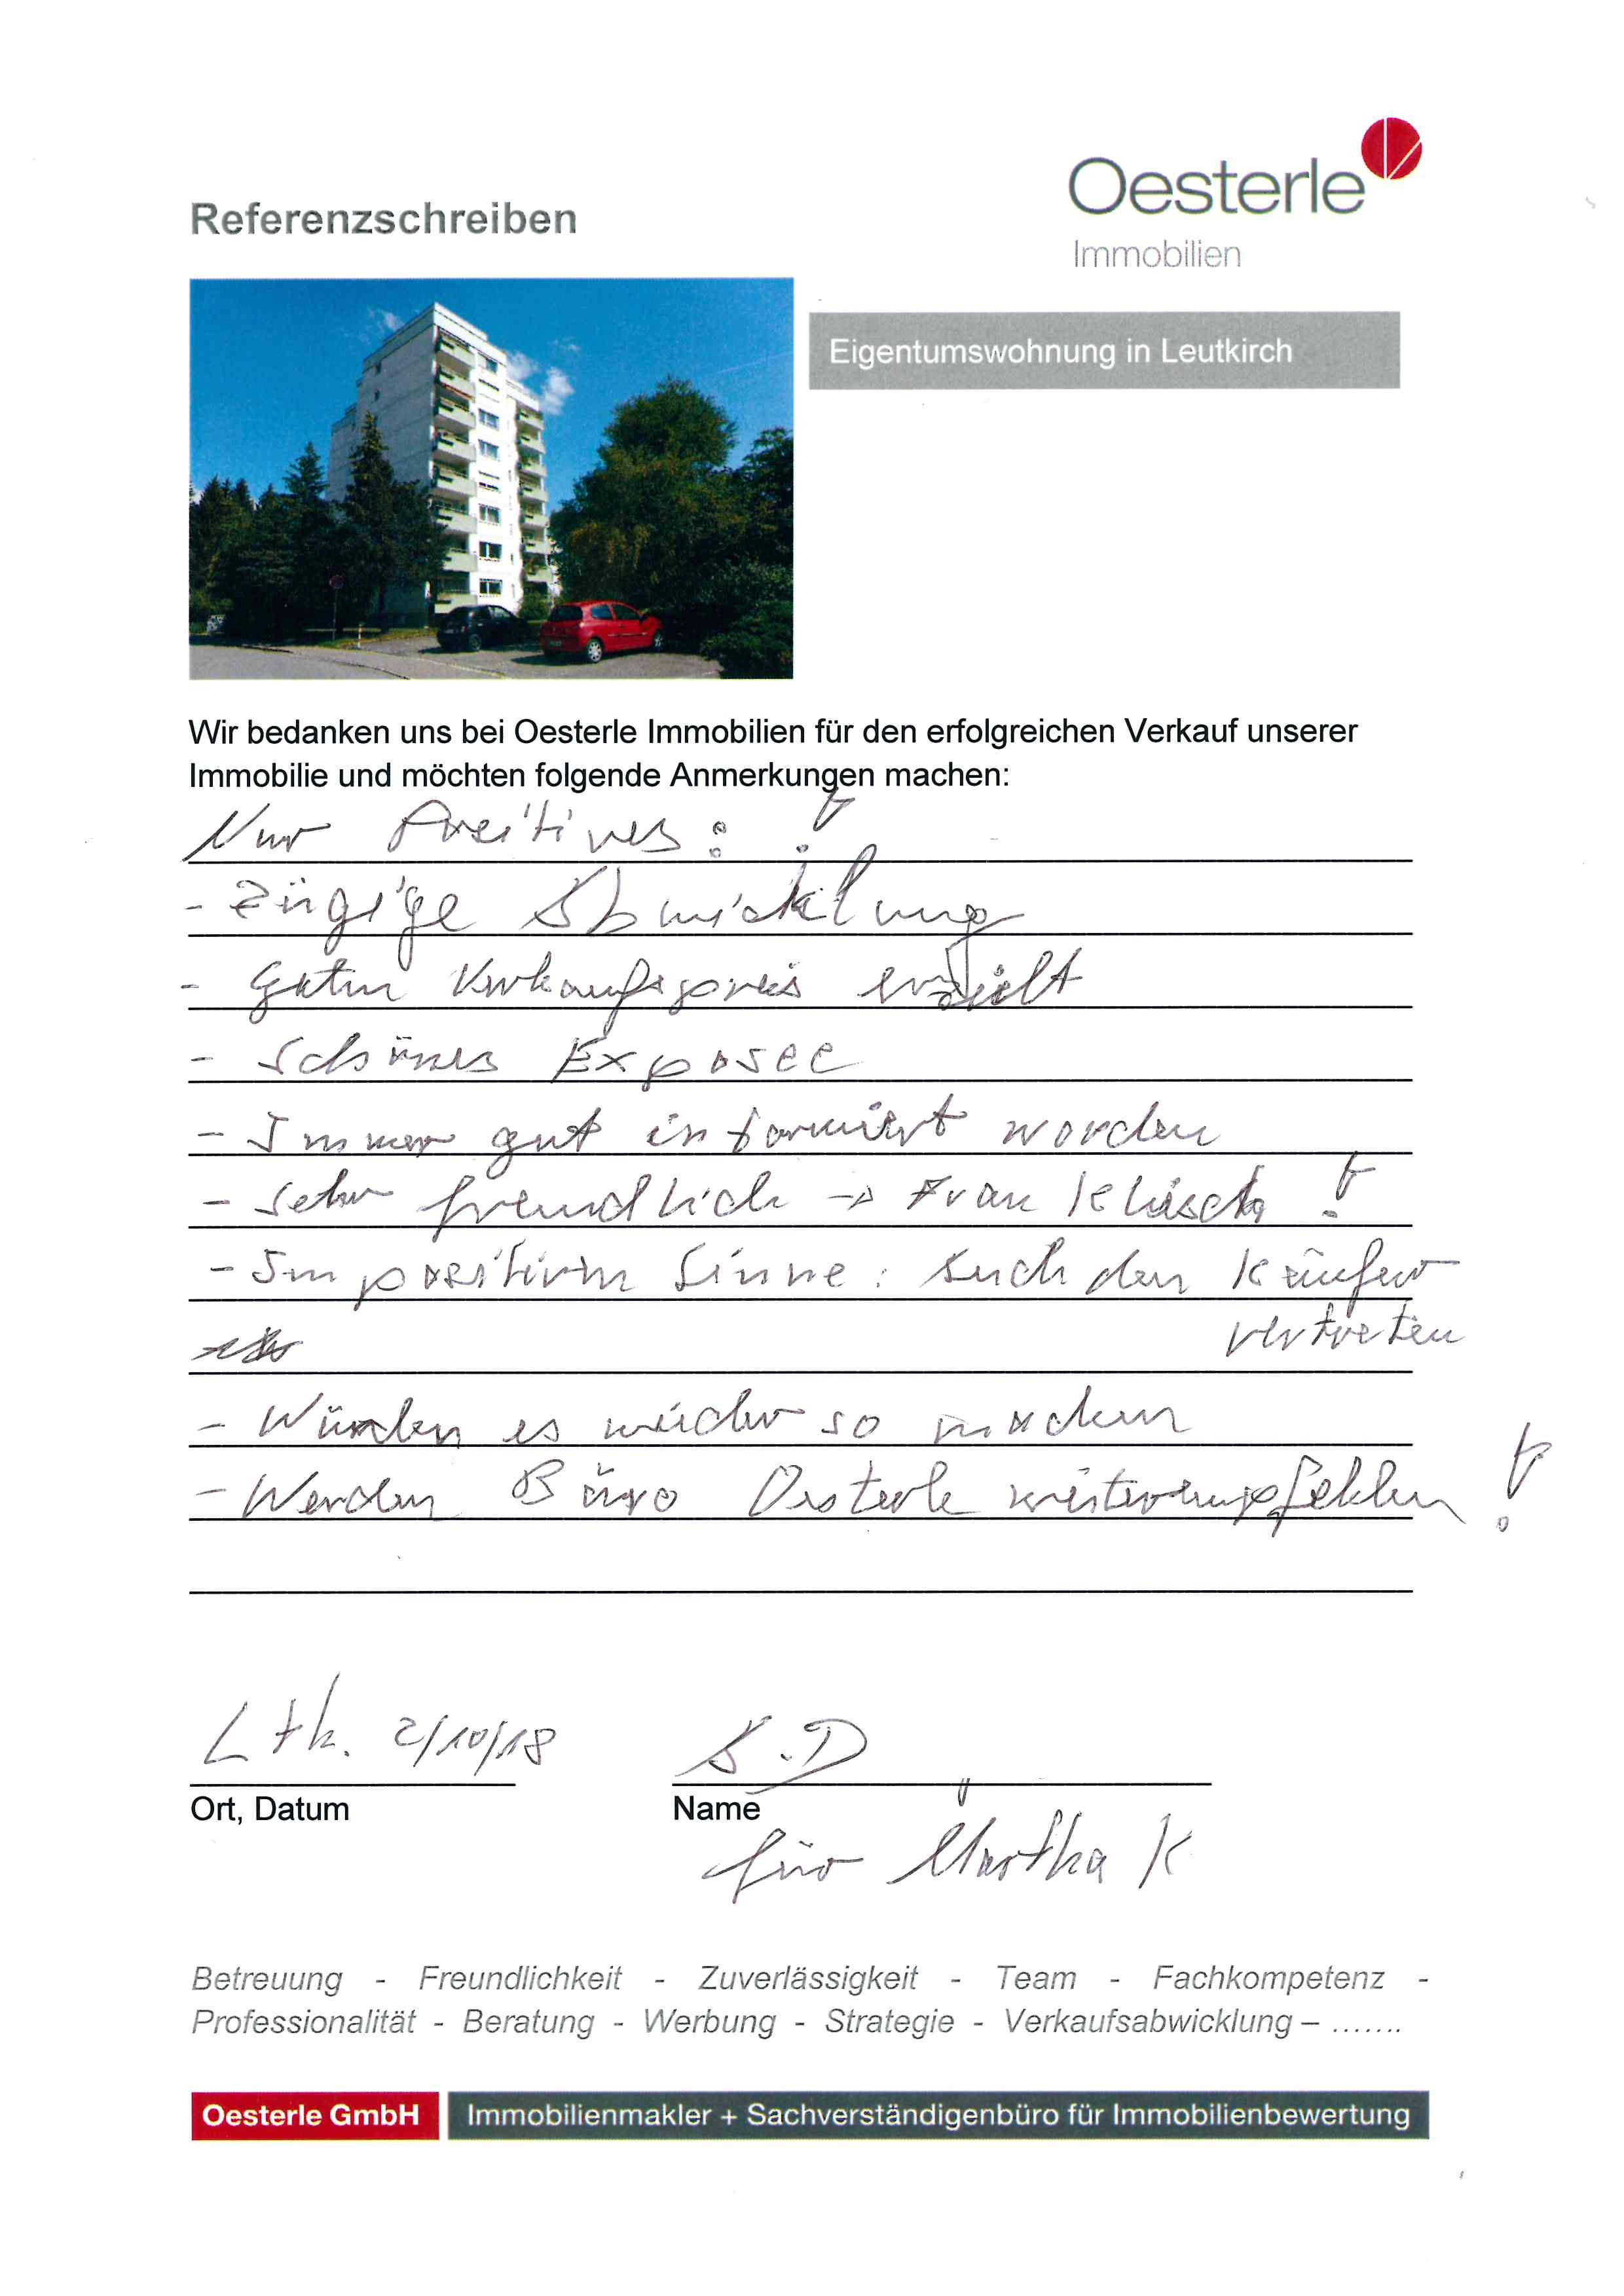 Oesterle
Immobilien
Referenzschreiben
Eigentumswohnung in Leutkirch
Wir bedanken uns bei Oesterle Immobilien für den erfolgreichen Verkauf unserer
Immobilie und möchten folgende Anmerkungen machen:
Nur Positives: !
- Zügige Abwicklung
- Guten Verkaufspreis erzielt
- Schönes Exposee
- Immer gut informiert worden
- Sehr freundlich → Frau !
- Im positiven Sinne: Auch den Käufer
vertreten
- Würden es wieder so machen
- Werden Büro Oesterle weiterempfehlen !
Ltk. 2/10/18
A.D
Ort, Datum
Name
für Martha K
Betreuung - Freundlichkeit - Zuverlässigkeit - Team - Fachkompetenz -
Professionalität - Beratung - Werbung - Strategie - Verkaufsabwicklung – .......
Oesterle GmbH
Immobilienmakler + Sachverständigenbüro für Immobilienbewertung